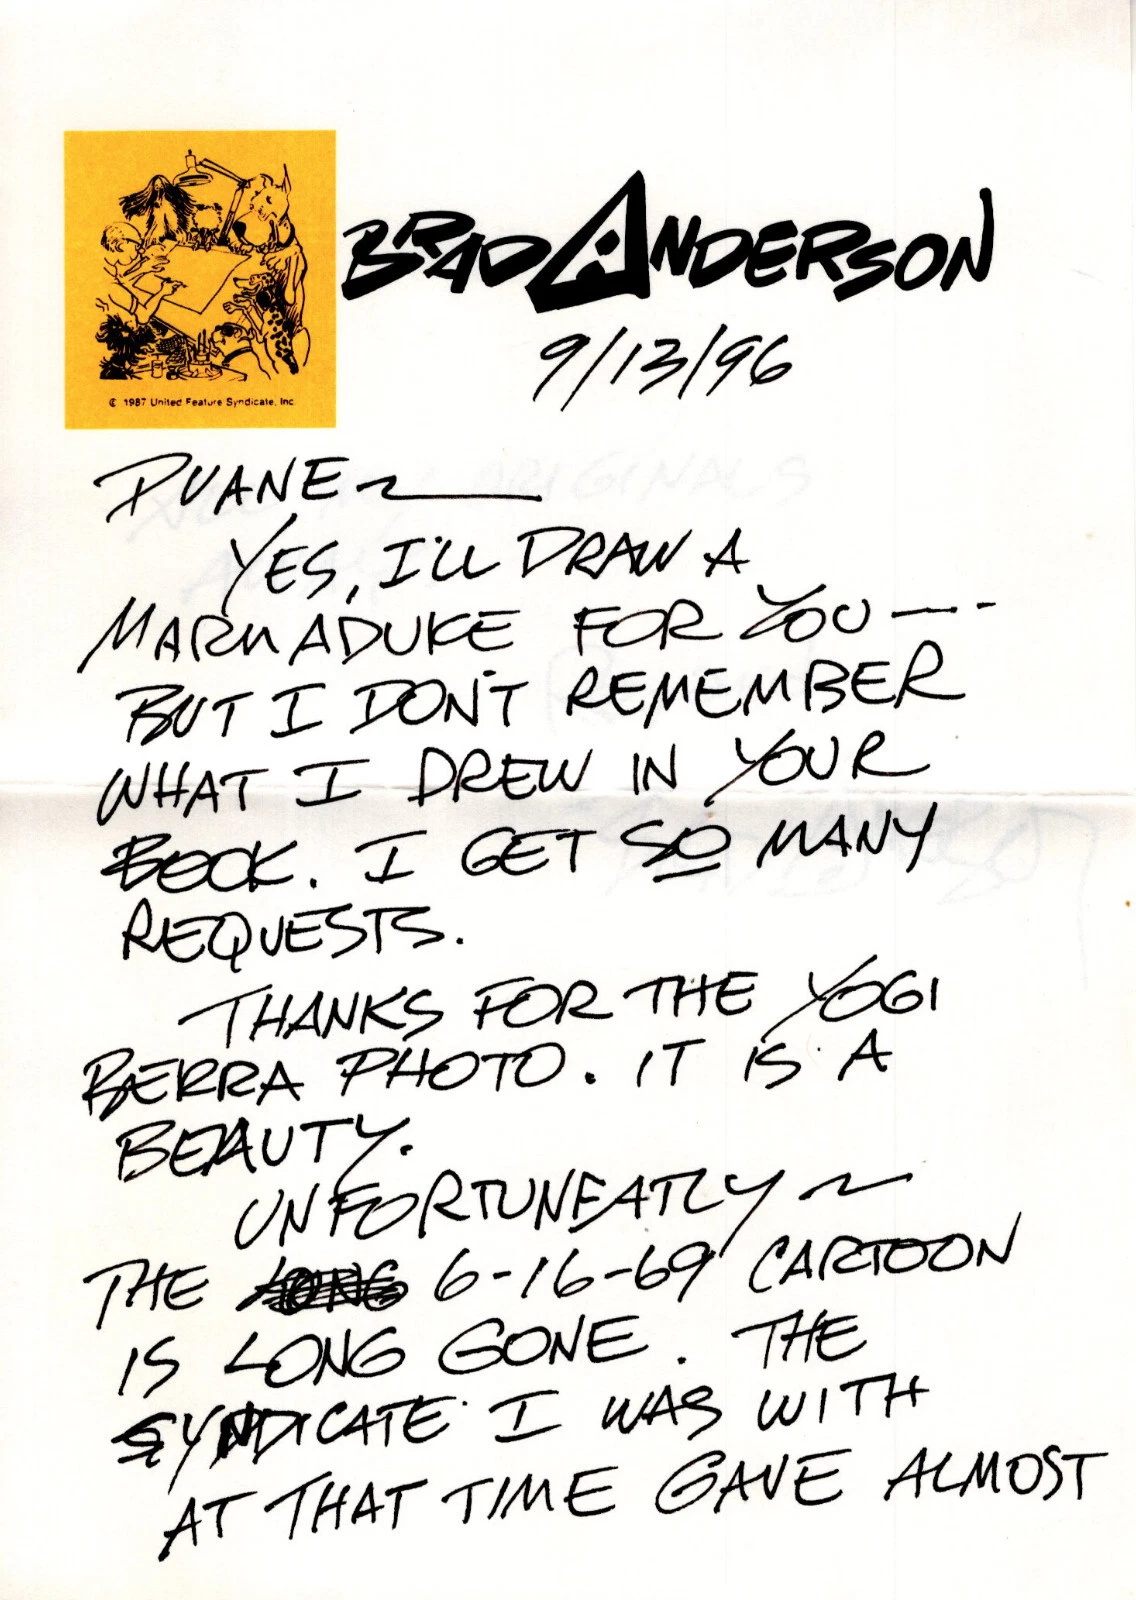 BRAD ANDERSON
9/13/96
© 1987 United Feature Syndicate, Inc.
DUANE ~
YES, I'LL DRAW A
MARMADUKE FOR YOU ---
BUT I DON'T REMEMBER
WHAT I DREW IN YOUR
BOOK. I GET SO MANY
REQUESTS.
THANKS FOR THE YOGI
BERRA PHOTO. IT IS A
BEAUTY.
UNFORTUNEATLY ~
THE 6-16-69 CARTOON
IS LONG GONE. THE
SYNDICATE I WAS WITH
AT THAT TIME GAVE ALMOST